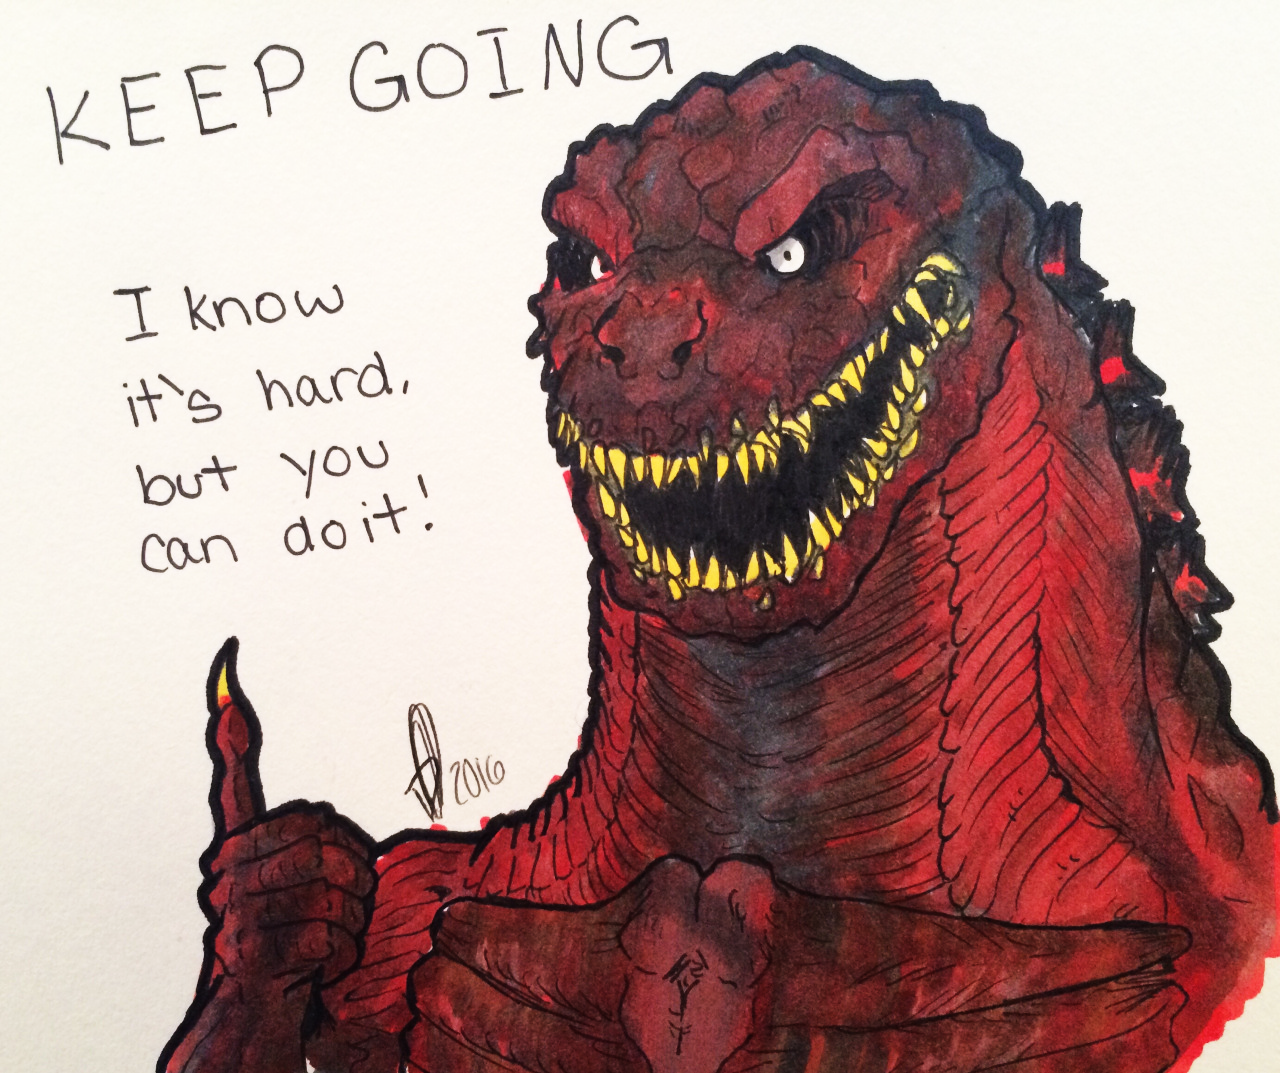 KEEP GOING
I know
it's hard,
but you
can do it!
2016